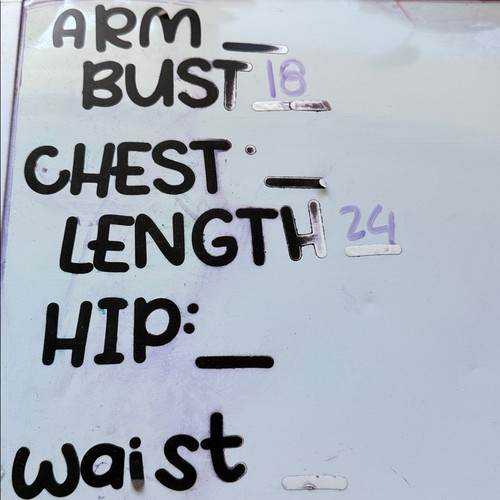 ARM _
BUST 18
CHEST: _
LENGTH 24
HIP: _
waist _